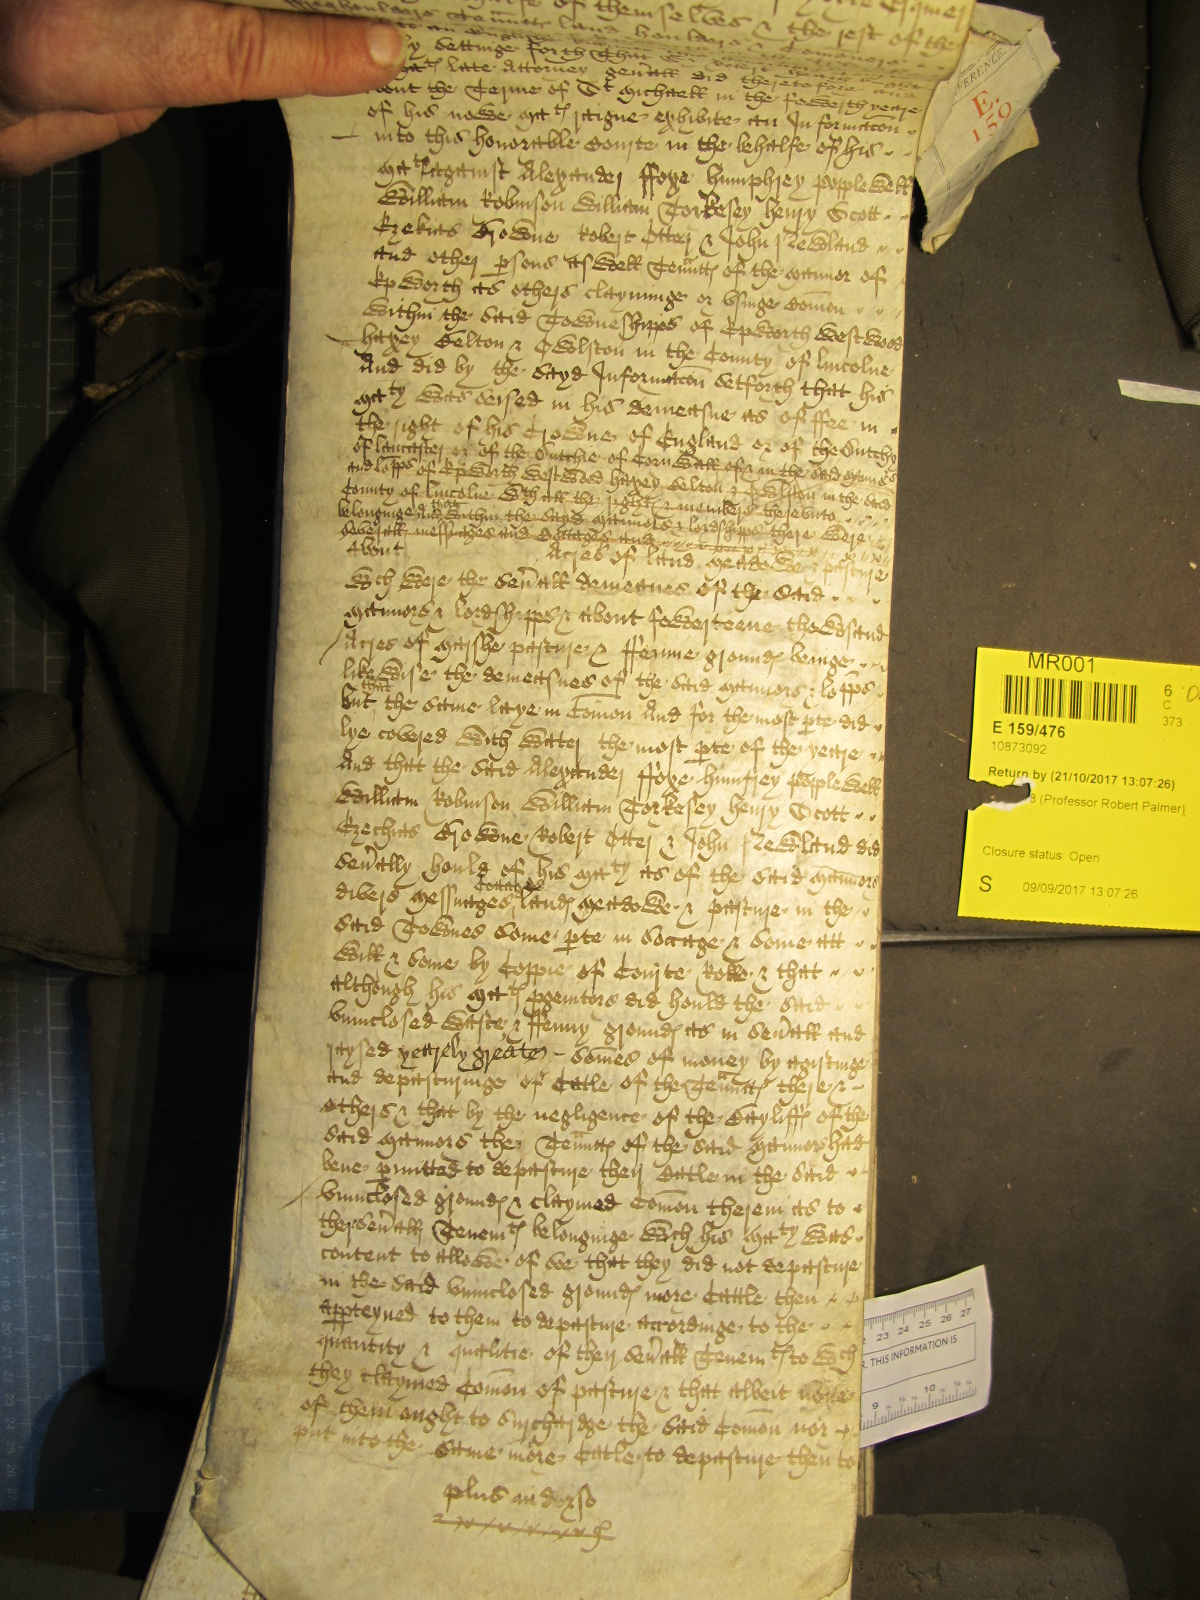 of themselves & the rest of the
y settinge forth that
late Attorney gen'all did theretofore
about the Terme of St Michaell in the fowerth yeare
of his nowe Ma'ts raigne exhibite an Informac'on
into this honorable Courte in the behalfe of his
Ma'ts against Alexander ffoxe Humphrey Popplewell
William Robinson William Torkesey Henry Scott
Ezekias Browne Robert Otter & John Newland
and other p'sons aswell Ten'nts of the Mannor of
Epworth as others clayminge or usinge Com'on
within the said Towneshipps of Epworth Westwood
haxey Belton & Owlston in the County of Lincolne
And did by the sayd Informac'on setforth that his
Ma'ty was seised in his demeasne as of ffee in
the right of his Crowne of England or of the Dutchy
of Lancaster or of the Dutchie of Cornwall of & in the said Mannors
and lo'pps of Epworth Westwood haxey Belton & Owlston in the said
County of Lincolne w'th all the rights & members thereunto
belonginge And that within the said Mannors & lordshipps there were
severall messuages and Cottages and
about Acres of land meadowe & pasture
w'ch were the sev'all demeanes of the said
Mannors & lordshipps & about fowerteene thowsand
Acres of Marshe pasture & ffenne grounds beinge
likewise the demeasnes of the said Mannors & lo'pps
but that the same laye in Com'on And for the most p'te did
lye covered with water the most p'te of the yeare
And that the said Alexander ffoxe Humfrey Popplewell
William Robinson William Torkesey Henry Scott
Ezechias Browne Robert Otter & John Newland did
sev'ally hould of his Ma'ty as of the said Mannors
divers Messuages Cottages lands Meadowe & pasture in the
said Townes some p'te in Soccage & some att
Will & some by Coppie of Courte Rolle & that
although his Ma'ts p'genitors did hould the said
uninclosed waste & ffenny grounds as in sev'all and
raysed yearely greate som'es of money by agistinge
and depasturinge of Catle of the Ten'nts there &
others & that by the negligence of the Bayliffs of the
said Mannors the Ten'nts of the said Mannors had
bene p'mitted to depasture their Cattle in the said
uninclosed grounds & claymed Com'on therein as to
their sev'all Tenem'ts belonginge w'ch his Ma'ty was
content to allowe of soe that they did not depasture
in the said uninclosed grounds more Cattle then
app'teyned to them to depasture accordinge to the
quantity & qualitie of their sev'all Tenem'ts to w'ch
they claymed Com'on of pasture & that albeit none
of them ought to surcharge the said Com'on nor
put into the same more Catle to depasture then to
plus in dorso
FERENCE.
E.
159
MR001
E 159/476
10873092
Return by (21/10/2017 13:07:26)
8 (Professor Robert Palmer)
Closure status: Open
S 09/09/2017 13:07:26
6
C
373
23 24 25 26 27
R. THIS INFORMATION IS
9 10